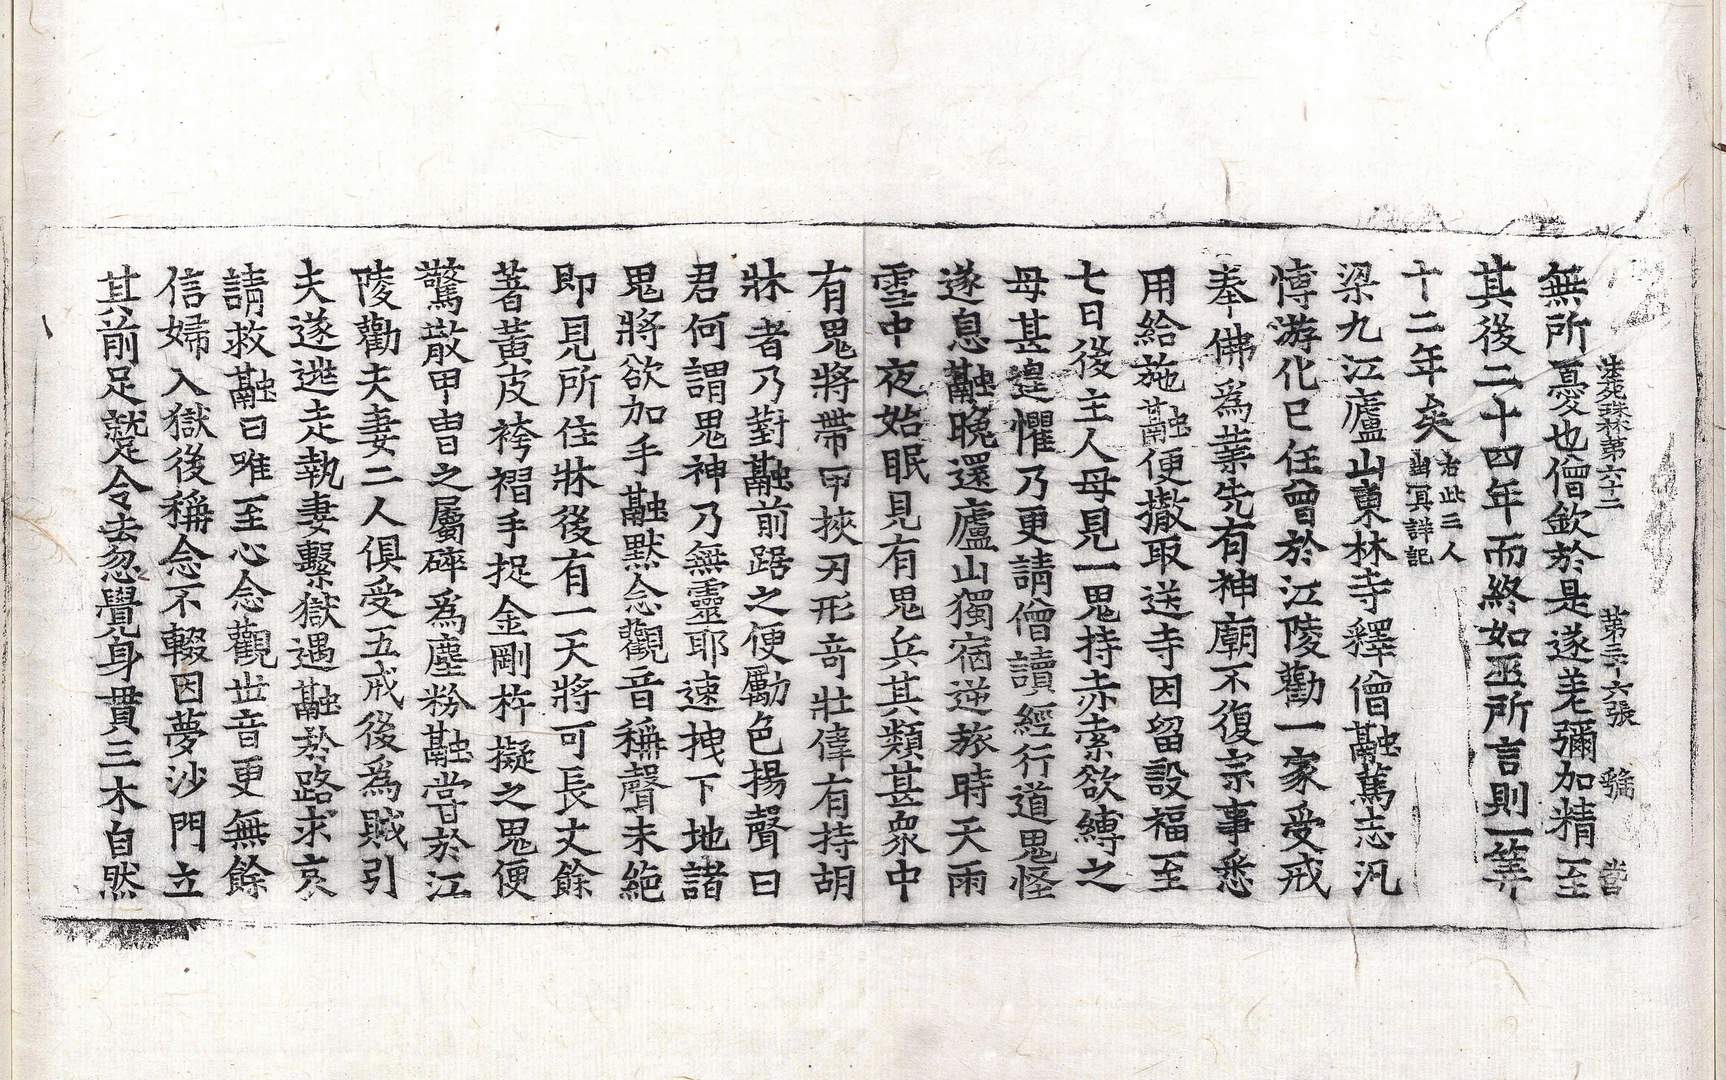 法苑珠林第六十二 第三十六張 號 営
無所憂也僧欽於是遂差彌加精至
其後二十四年而終如巫所言則一等
十二年矣右此三人出冥詳記
梁九江廬山東林寺釋僧融篤志汎
愽游化已任曾於江陵勸一家受戒
奉佛爲業先有神廟不復宗事悉
用給施融便撤取送寺因留設福至
七日後主人母見一鬼持赤索欲縛之
母甚遑懼乃更請僧讀經行道鬼怪
遂息融晚還廬山獨宿逆旅時天雨
雪中夜始眠見有鬼兵其類甚衆中
有鬼將帶甲挾刃形奇壯偉有持胡
牀者乃對融前踞之便勵色揚聲曰
君何謂鬼神乃無靈耶速拽下地諸
鬼將欲加手融默念觀音稱聲未絕
即見所住牀後有一天將可長丈餘
著黃皮袴褶手捉金剛杵擬之鬼便
驚散甲冑之屬碎爲塵粉融嘗於江
陵勸夫妻二人俱受五戒後爲賊引
夫遂逃走執妻繫獄遇融於路求哀
請救融曰唯至心念觀世音更無餘
信婦入獄後稱念不輟因夢沙門立
其前足蹴令去忽覺身貫三木自然